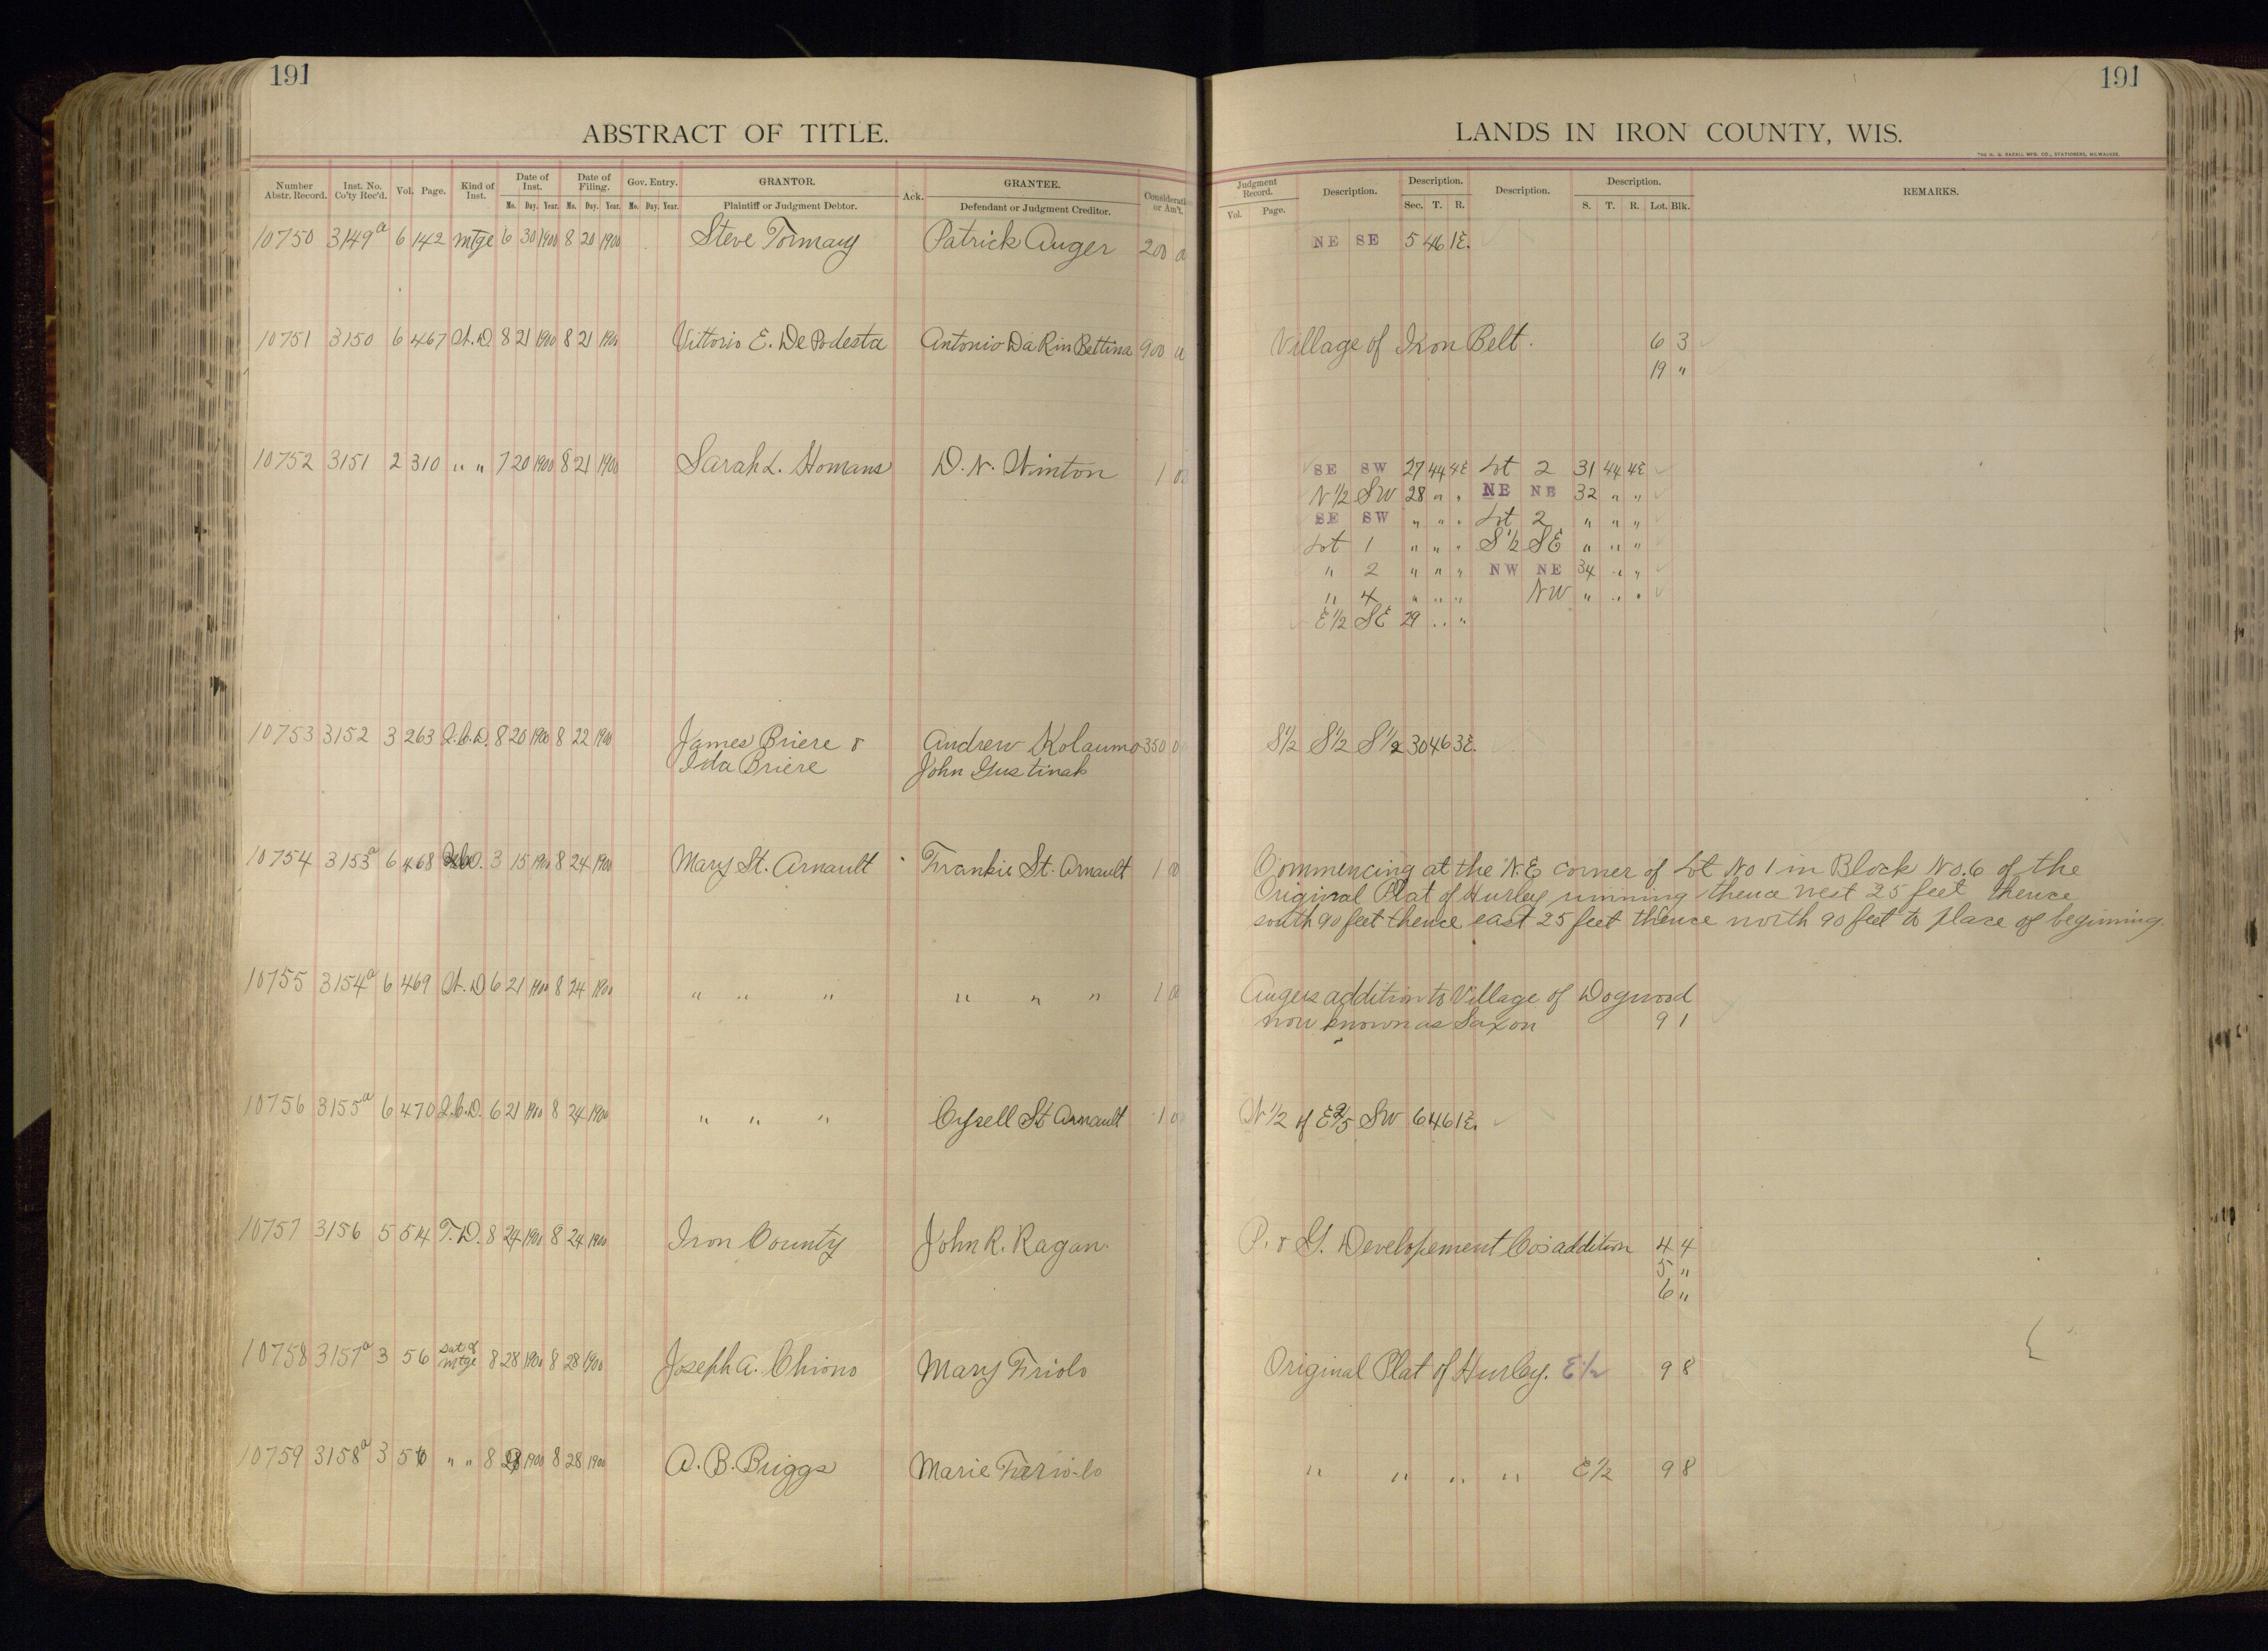 191
ABSTRACT OF TITLE.
Number Abstr. Record. Inst. No. Co'ty Rec'd. Vol. Page. Kind of Inst. Date of Inst. Date of Filing. Gov. Entry. GRANTOR. Ack. GRANTEE. Consideration or Am't.
Mo. Day. Year. Mo. Day. Year. Mo. Day. Year. Plaintiff or Judgment Debtor. Defendant or Judgment Creditor.
10750 3149a 6 142 Mtge 6 30 1900 8 20 1900 Steve Tormay Patrick Auger 200
10751 3150 6 467 W.D. 8 21 1900 8 21 1900 Vittorio E. De Podesta Antonio Da Rin Bettina 900
10752 3151 2 310 " " 7 20 1900 8 21 1900 Sarah L. Homans D. N. Winton 1 00
10753 3152 3 263 Q.C.D. 8 20 1900 8 22 1900 James Briere & Andrew Kolaumo 350
Ida Briere John Gustinak
10754 3153a 6 468 3 15 1900 8 24 1900 Mary St. Arnault Frankie St. Arnault 1 00
10755 3154a 6 469 W.D. 6 21 1900 8 24 1900 " " " " " " 1 00
10756 3155a 6 470 Q.C.D. 6 21 1900 8 24 1900 " " " Cyrell St Arnault 1 0
10757 3156 5 514 T.D. 8 24 1900 8 24 1900 Iron County John R. Ragan.
10758 3157a 3 56 Sat of Mtge 8 28 1900 8 28 1900 Joseph A. Chiono Mary Firiolo
10759 3158a 3 56 " " 8 28 1900 8 28 1900 A. B. Briggs Marie
191
LANDS IN IRON COUNTY, WIS.
THE H. G. RAZALL MFG. CO., STATIONERS, MILWAUKEE.
Judgment Record. Description. Description. Description. Description. REMARKS.
Vol. Page. Sec. T. R. S. T. R. Lot. Blk.
NE SE 5 46 1E.
Village of Iron Belt. 6 3
19 "
SE SW 27 44 4E Lot 2 31 44 4E
N 1/2 SW 28 " " NE NE 32 " "
SE SW " " " Lot 2 " " "
Lot 1 " " " S 1/2 SE " " "
" 2 " " " NW NE 34 " "
" 4 " " " NW " " "
E 1/2 SE 29 " "
S 1/2 S 1/2 S 1/2 30 46 3E.
Commencing at the N.E corner of Lot No 1 in Block No. 6 of the
Original Plat of Hurley running thence west 25 feet thence
south 90 feet thence east 25 feet thence north 90 feet to place of beginning.
Augers addition to Village of Dogwood
now known as Saxon 9 1
N 1/2 of E 2/5 SW 6 46 1E.
P. & G. Developement Co's addition 4 4
5 "
6 "
Original Plat of Hurley. E 1/2 9 8
" " " " E 1/2 9 8